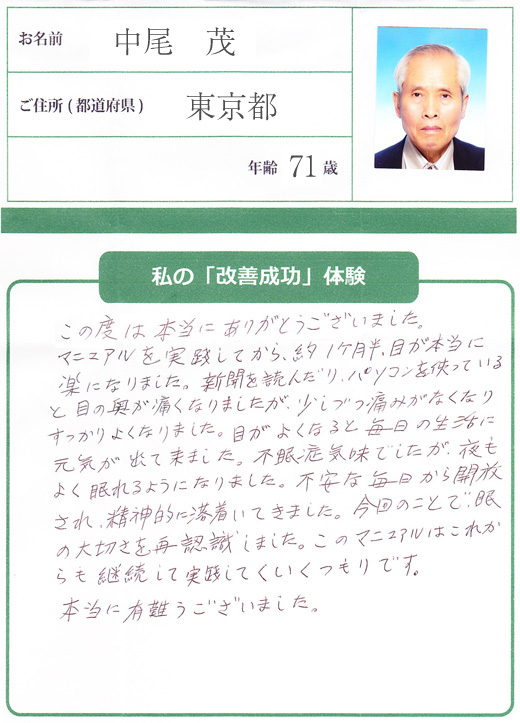 お名前 中尾 茂
ご住所(都道府県) 東京都
年齢 71 歳
私の「改善成功」体験
この度は本当にありがとうございました。
マニュアルを実践してから、約1ケ月半、目が本当に
楽になりました。新聞を読んだり、パソコンを使っている
と目の奥が痛くなりましたが、少しづつ痛みがなくなり
すっかりよくなりました。目がよくなると毎日の生活に
元気が出て来ました。不眠症気味でしたが、夜も
よく眠れるようになりました。不安な毎日から開放
され、精神的に落着いてきました。今回のことで、眼
の大切さを再認識しました。このマニュアルはこれか
らも継続して実践してくいくつもりです。
本当に有難うございました。